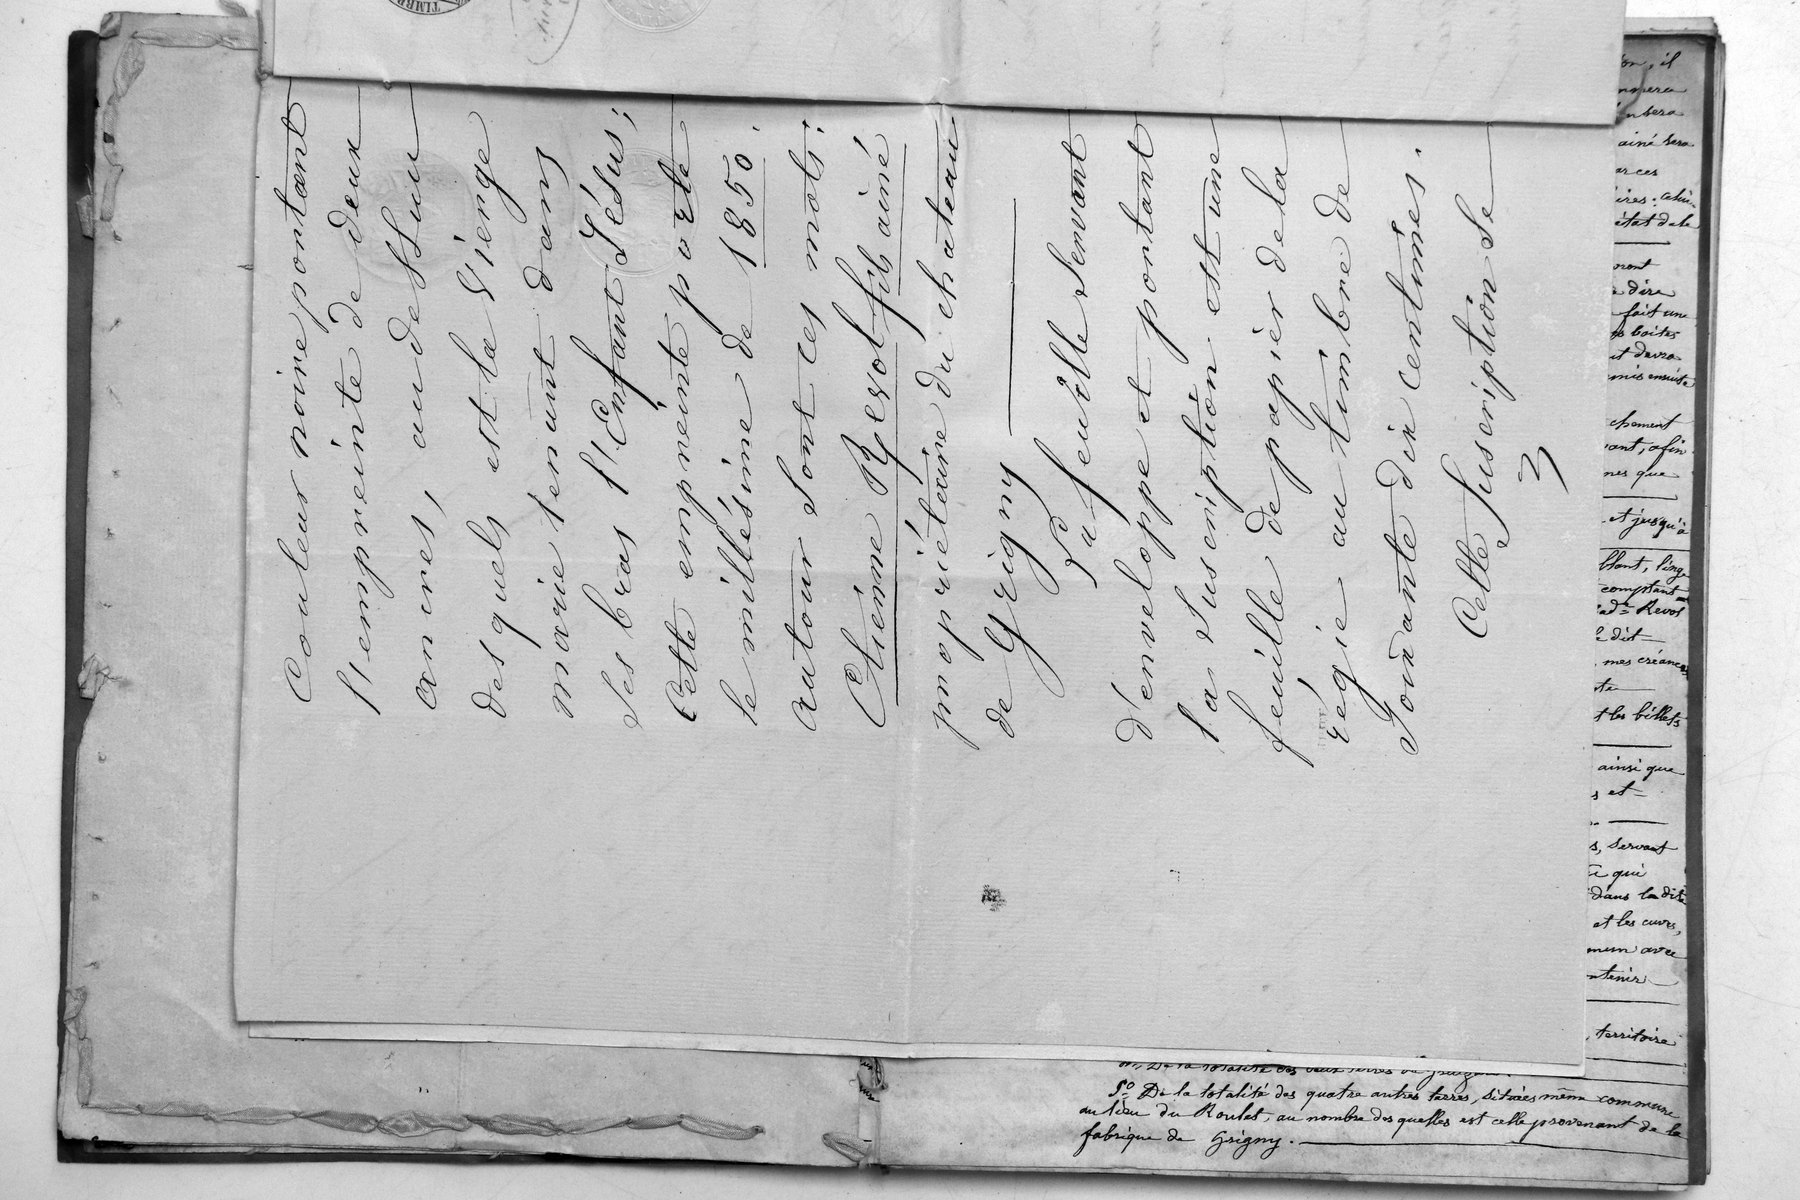 Couleur noire portant
l'empreinte de deux
anires, au dessus
des quels est la Vierge
marie tenant dans
ses bras l'Enfant Jésus;
Cette empreinte porte
le millésime de 1850.
autour sont ces mots:
Etienne Revol fils ainé
propriétaire du chateau
de Grigny
La feuille servant
d'enveloppe et portant
la suscription est une
feuille de papier de la
régie au timbre de
soixante dix centimes.
Cette suscription se
3
TIMBR
il
nnera
sera
ainé sera
ces
état de la
dire
fait une
boites
devra
mis ensuite
vant, afin
que
et jusqu'à
blant, linge
comptant
Revol
dit
mes créances
les billets
ainsi que
et
servant
qui
dans la dite
et les cuves,
avec
territoire
5° De la totalité des quatre autres terres, situées même commune
au lieu du Roulet, au nombre des quelles est celle provenant de la
fabrique de Grigny.